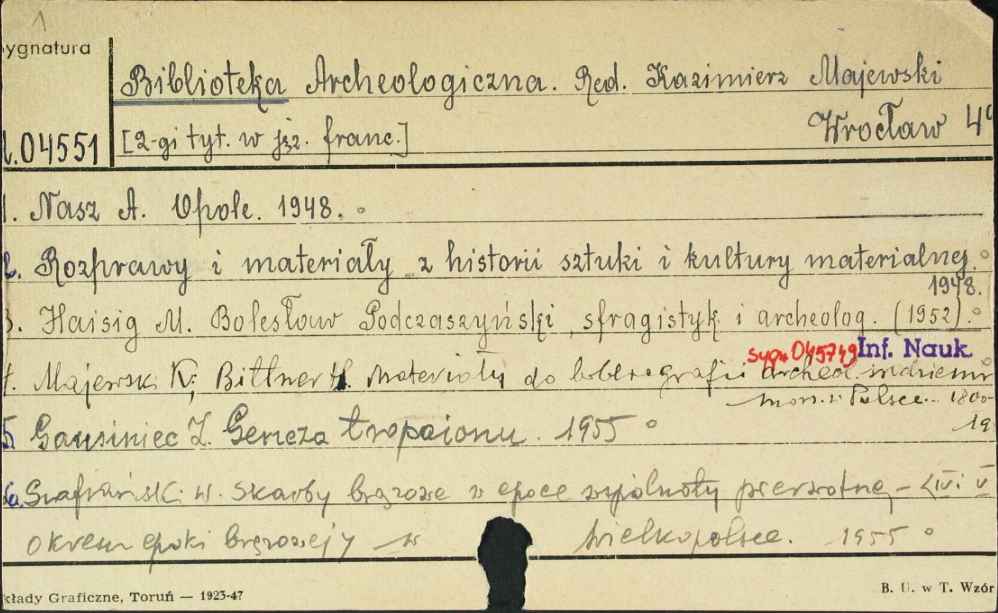 1
ygnatura
Biblioteka Archeologiczna. Red. Kazimierz Majewski
[2-gi tyt. w jęz. franc.] Wrocław 4°
.04551
1. Nasz A. Opole. 1948.
2. Rozprawy i materiały z historii sztuki i kultury materialnej.
1948.
3. Haisig M. Bolesław Podczaszyński, sfragistyk i archeolog. (1952).
sygn 045749 Inf. Nauk.
4. Majewski K; Bittner H. Materiały do bibliografii archeol.
w Polsce. 1800-
19
5. Gansiniec Z. Geneza tropaionu. 1955
6. Szafrański W. Skarby brązowe z epoce wspólnoty pierwotnej – IV i V
okresu epoki brązowej w Wielkopolsce. 1955
kłady Graficzne, Toruń — 1923-47
B. U. w T. Wzór